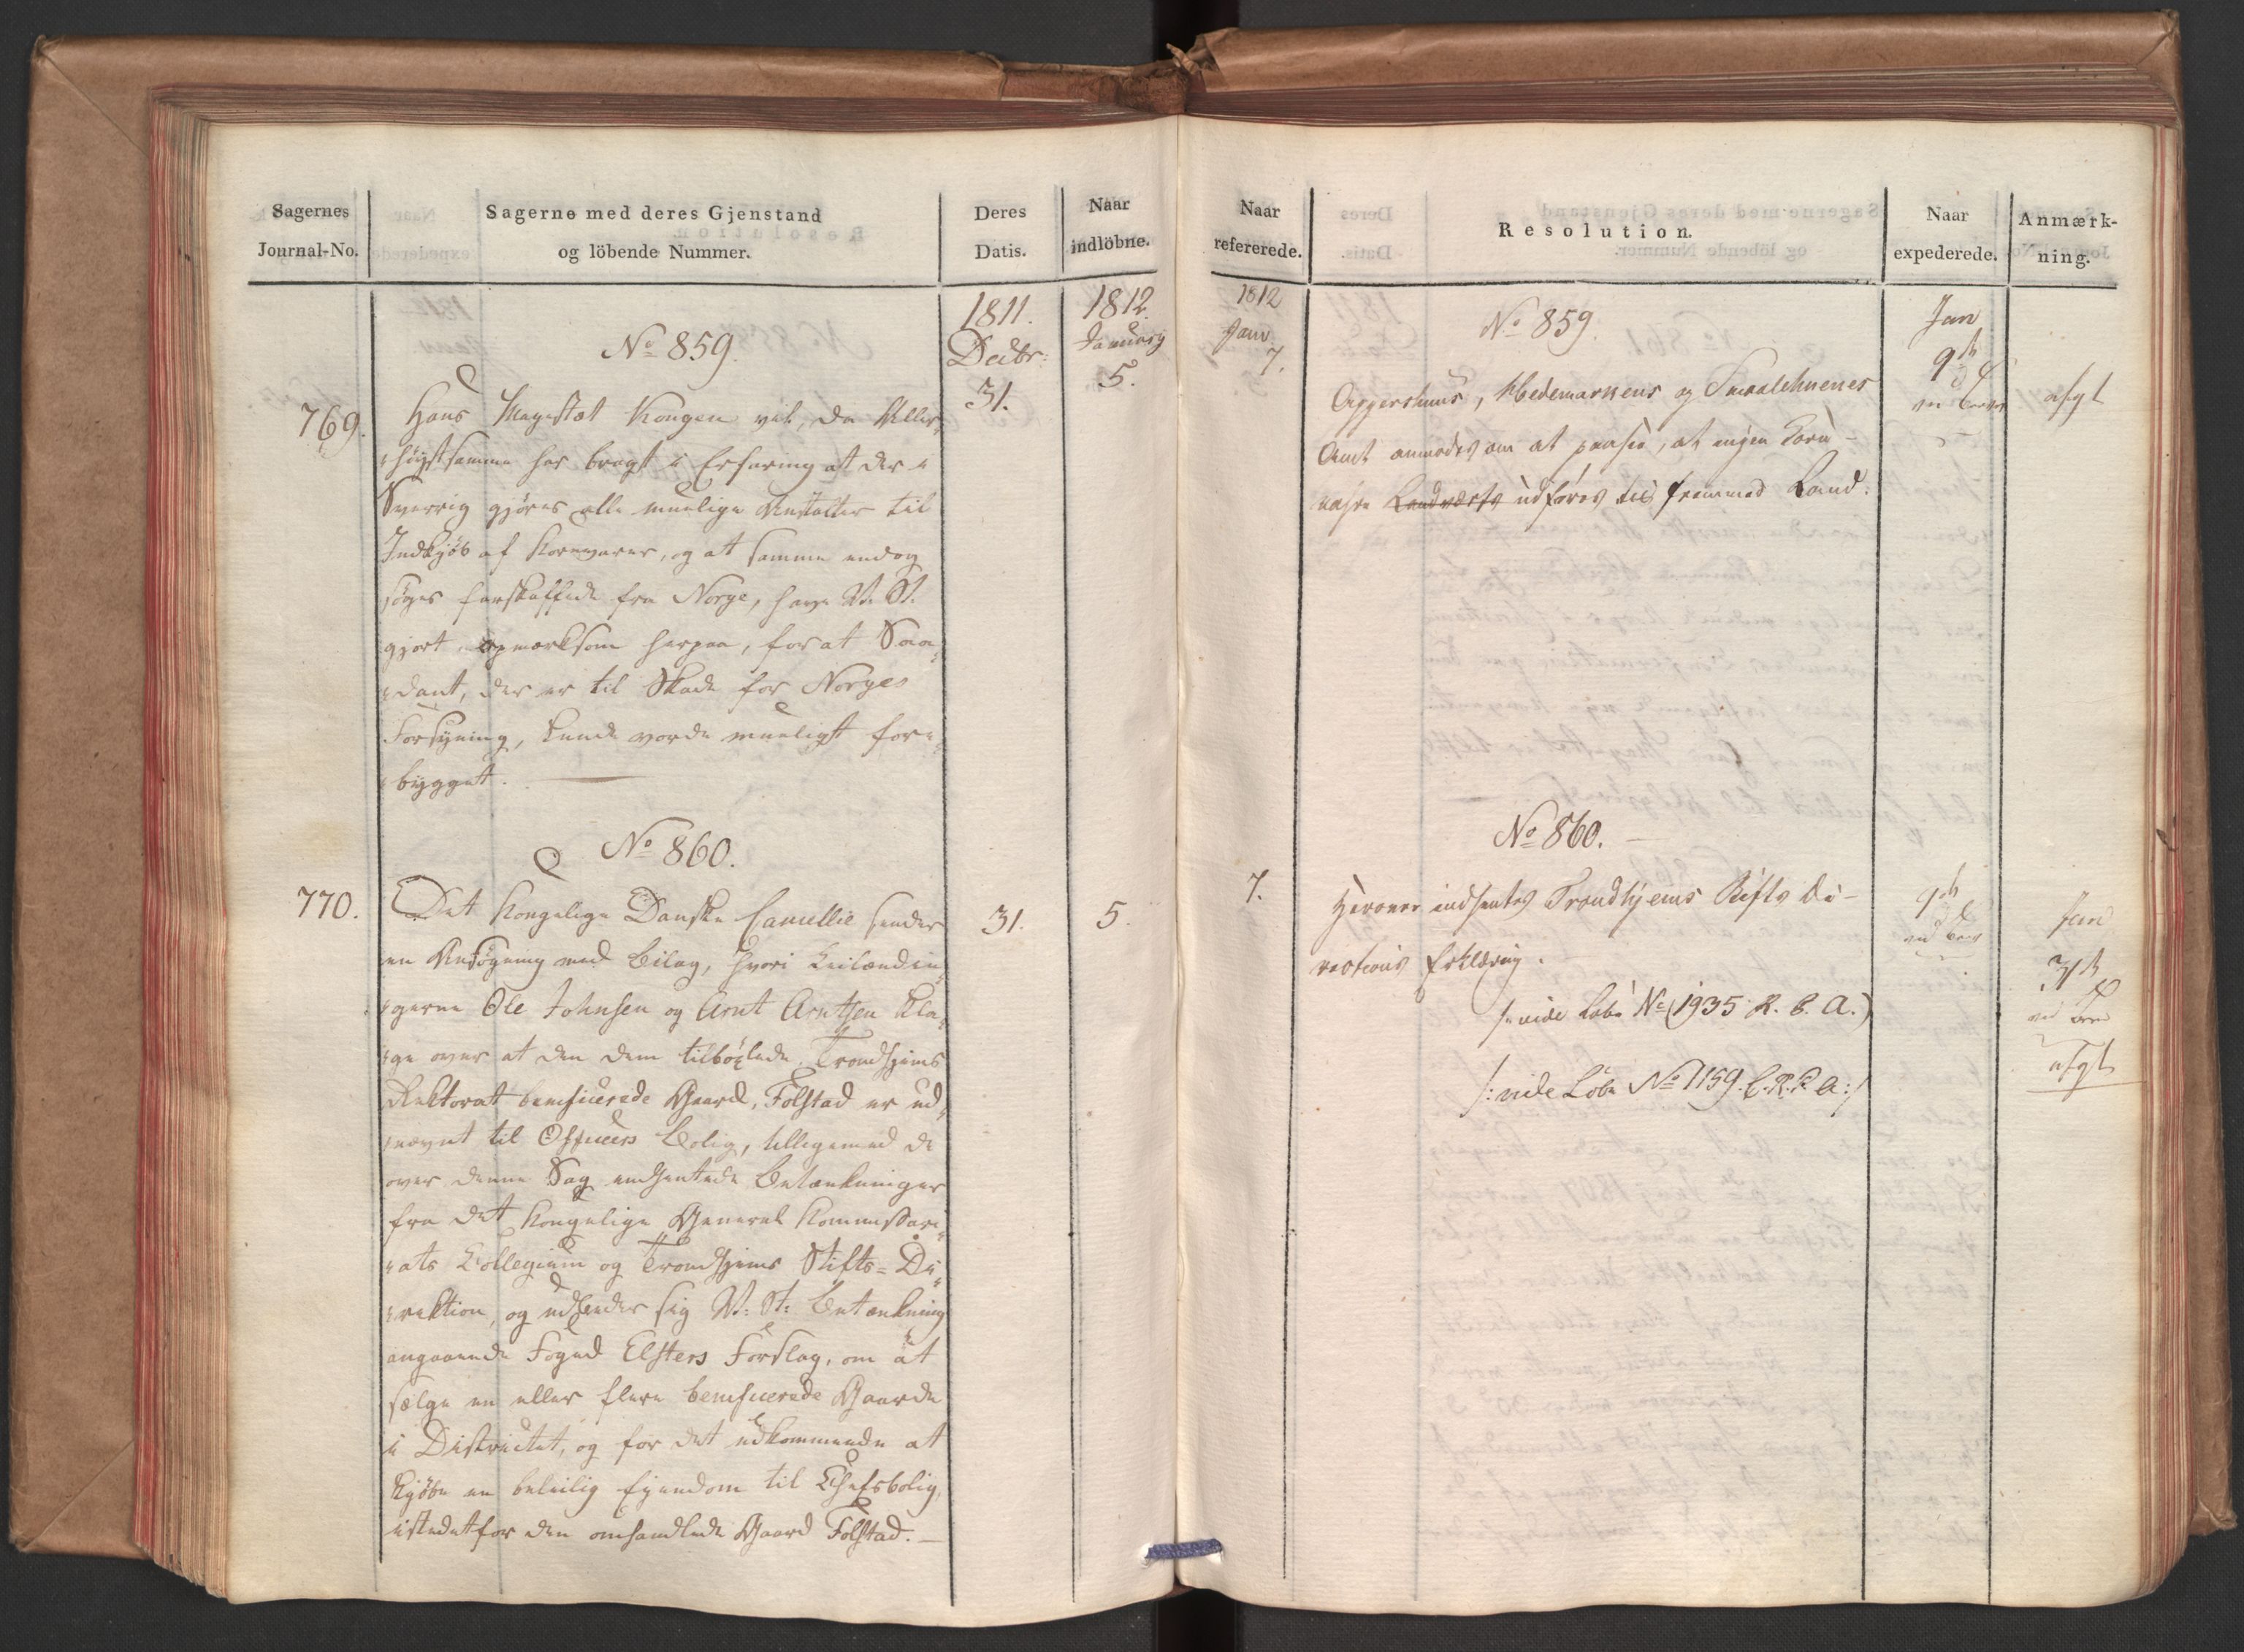 Sagernes
Journal-No.
Sagerne med deres Gjenstand
og löbende Nummer.
Deres
Datis.
Naar
indlöbne.
1811.
Decbr:
31.
1812.
Januarÿ
5.
No 859.
769.
Hans Mayestæt Kongen vil, da Aller-
høystsamme har bragt i Erfaring at der i
Sverrig gjøres alle muelige Anstalter til
Indkjøb af Kornvarer, og at samme endog
søges forskaffede fra Norge, have R. St.
gjort opmærksom herpaa, for at Saa-
dant, der er til Skade for Norges
Forsyning, kunde vorde mueligst fore-
bygget.
No 860.
770.
Det Kongelige Danske Cancellie sender
31.
5.
en Ansøgning med Bilag, hvori Leilændin-
gerne Ole Johnsen og Arnt Arntsen kla-
ge over at den dem tilbøxlede Trondhjems
Rektorat beneficerede Gaard, Folstad er ud-
nævnt til Officeers Bolig, tilligemed de
over denne Sag indhentede Betænkninger
fra det Kongelige General Kommissari-
ats Collegium og Trondhjems Stifts-Di-
rektion, og udbeder sig R: St: Betænkning
angaaende Foged Elsters Forslag, om at
sælge en eller flere beneficerede Gaarde
i Districtet, og for det udkommende at
kjøbe en beleilig Eiendom til Chefsbolig,
istedetfor den omhandlede Gaard Folstad.
Naar
refererede.
Resolution.
Naar
expederede.
Anmærk-
ning.
1812
Janr
7.
No 859.
Jan
9de
Aggershuus, Hedemarkens og Smaalehnenes
afgt
Amt anmodes om at paasee, at ingen Korn-
vahre Landværts udføres til fremmed Land.
No 860.
7.
Herover indhentes Trondhjems Stifts Di-
rections Erklæring.
9de
Jan
31te
/: vide Løbe No (1935 R. C. A.)
/: vide Løbe No 1159. C. R. F. A:/
afgt